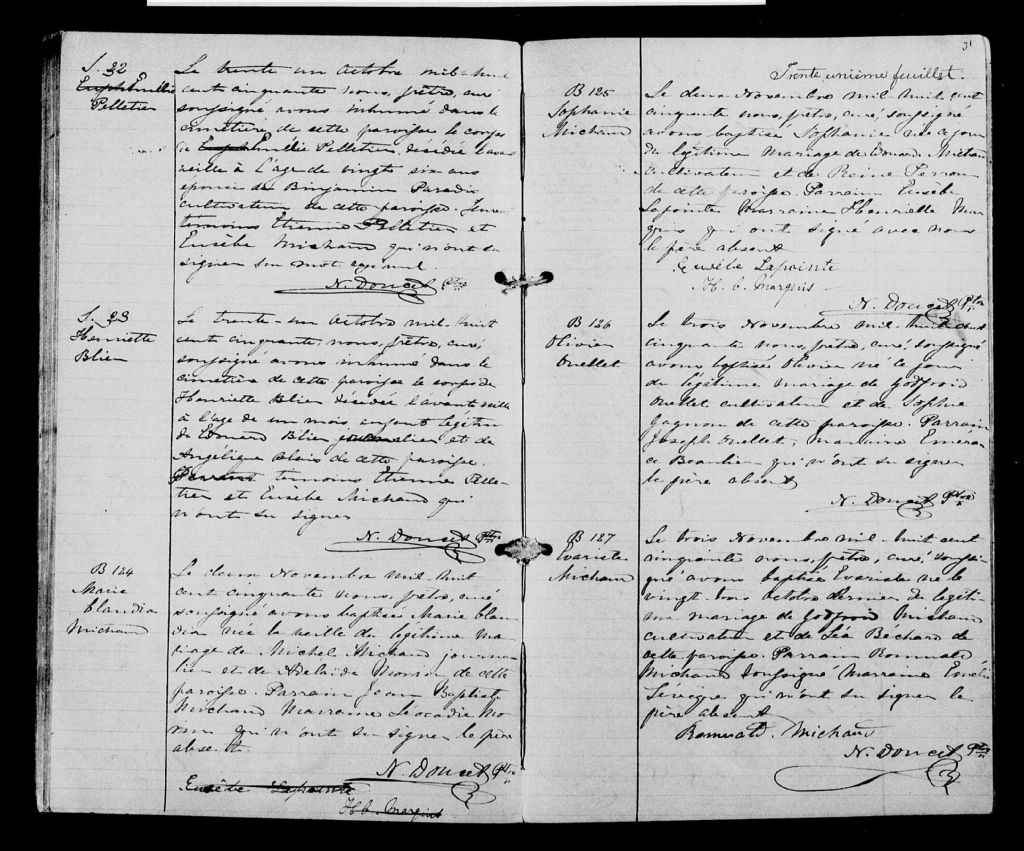 S. 32
Euphémille
Pelletier
Le trente un Octobre mil-huit
cent cinquante nous, prêtre, curé
soussigné, avons inhumé dans le
cimetière de cette paroisse le corps
de Pelletier, décédée l'avant
veille à l'âge de vingt six ans
épouse de Binjamin Paradis
cultivateur de cette paroisse. Furent
témoins Etienne Pelletier et
Eusèbe Michaud qui n'ont su
signer un mot rayé nul.
N. Doucet Ptre
S. 33
Henriette
Blien
Le trente-un Octobre mil-huit
cent cinquante, nous, prêtre, curé,
soussigné avons inhumé dans le
cimetière de cette paroisse le corps de
Henriette Blien décédée l'avant veille
à l'âge de un mois, enfant légitime
de Edouard Blien journalier et de
Angélique Blais de cette paroisse.
Furent témoins Etienne Pelle-
tier et Eusèbe Michaud qui
n'ont su signer
N. Doucet Ptre
B 124
Marie
Claudia
Michaud
Le deux Novembre mil-huit
cent cinquante nous, prêtre, curé
soussigné avons baptisé Marie Clau-
dia née la veille du légitime ma-
riage de Michel Michaud journa-
lier et de Adélaïde Morin de cette
paroisse. Parrain Jean Baptiste
Michaud Marraine Léocadie Mo-
rin qui n'ont su signer le père
absent.
N. Doucet Ptre
Eusèbe Lapointe
H. b. Marquis
31
Trente, unième feuillet.
B 125
Sophanie
Michaud
Le deux Novembre mil-huit, cent
cinquante nous, prêtre, curé, soussigné
avons baptisé Sophanie née ce jour
du légitime mariage de Edouard Michaud
cultivateur et de Reine Perron
de cette paroisse. Parrain Eusèbe
Lapointe Marraine Henriette Mar
quis qui ont signé avec nous
le père absent
Eusèbe Lapointe
H. b. Marquis
N. Doucet Ptre
B 126
Olivier
Ouellet
Le trois Novembre mil, huit cent
cinquante nous, prêtre, curé, soussigné
avons baptisé Olivier né ce jour
du légitime mariage de Godfroid
Ouellet cultivateur et de Sophie
Gagnon de cette paroisse. Parrain
Joseph Ouellet, marraine Eméren
ce Beaulieu qui n'ont su signer
le père absent
N. Doucet Ptre
B 127
Evariste
Michaud
Le trois Novembre mil-huit cent
cinquante nous, prêtre, curé, soussi-
gné avons baptisé Evariste né le
vingt trois octobre dernier du légiti-
me mariage de Godfroid Michaud
cultivateur et de Léa Bechard de
cette paroisse. Parrain Romuald
Michaud soussigné Marraine
qui n'ont su signer le
père absent
Romuald. Michaud
N. Doucet Ptre